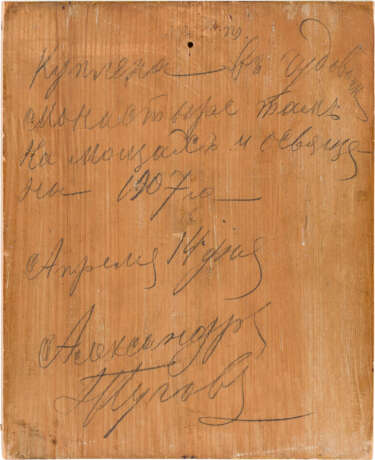 Куплена въ Чудовомъ
монастыре тамъ
на мощахъ и освяще
на 1907 го
Апреля 14 дня
Александръ
Пуговъ